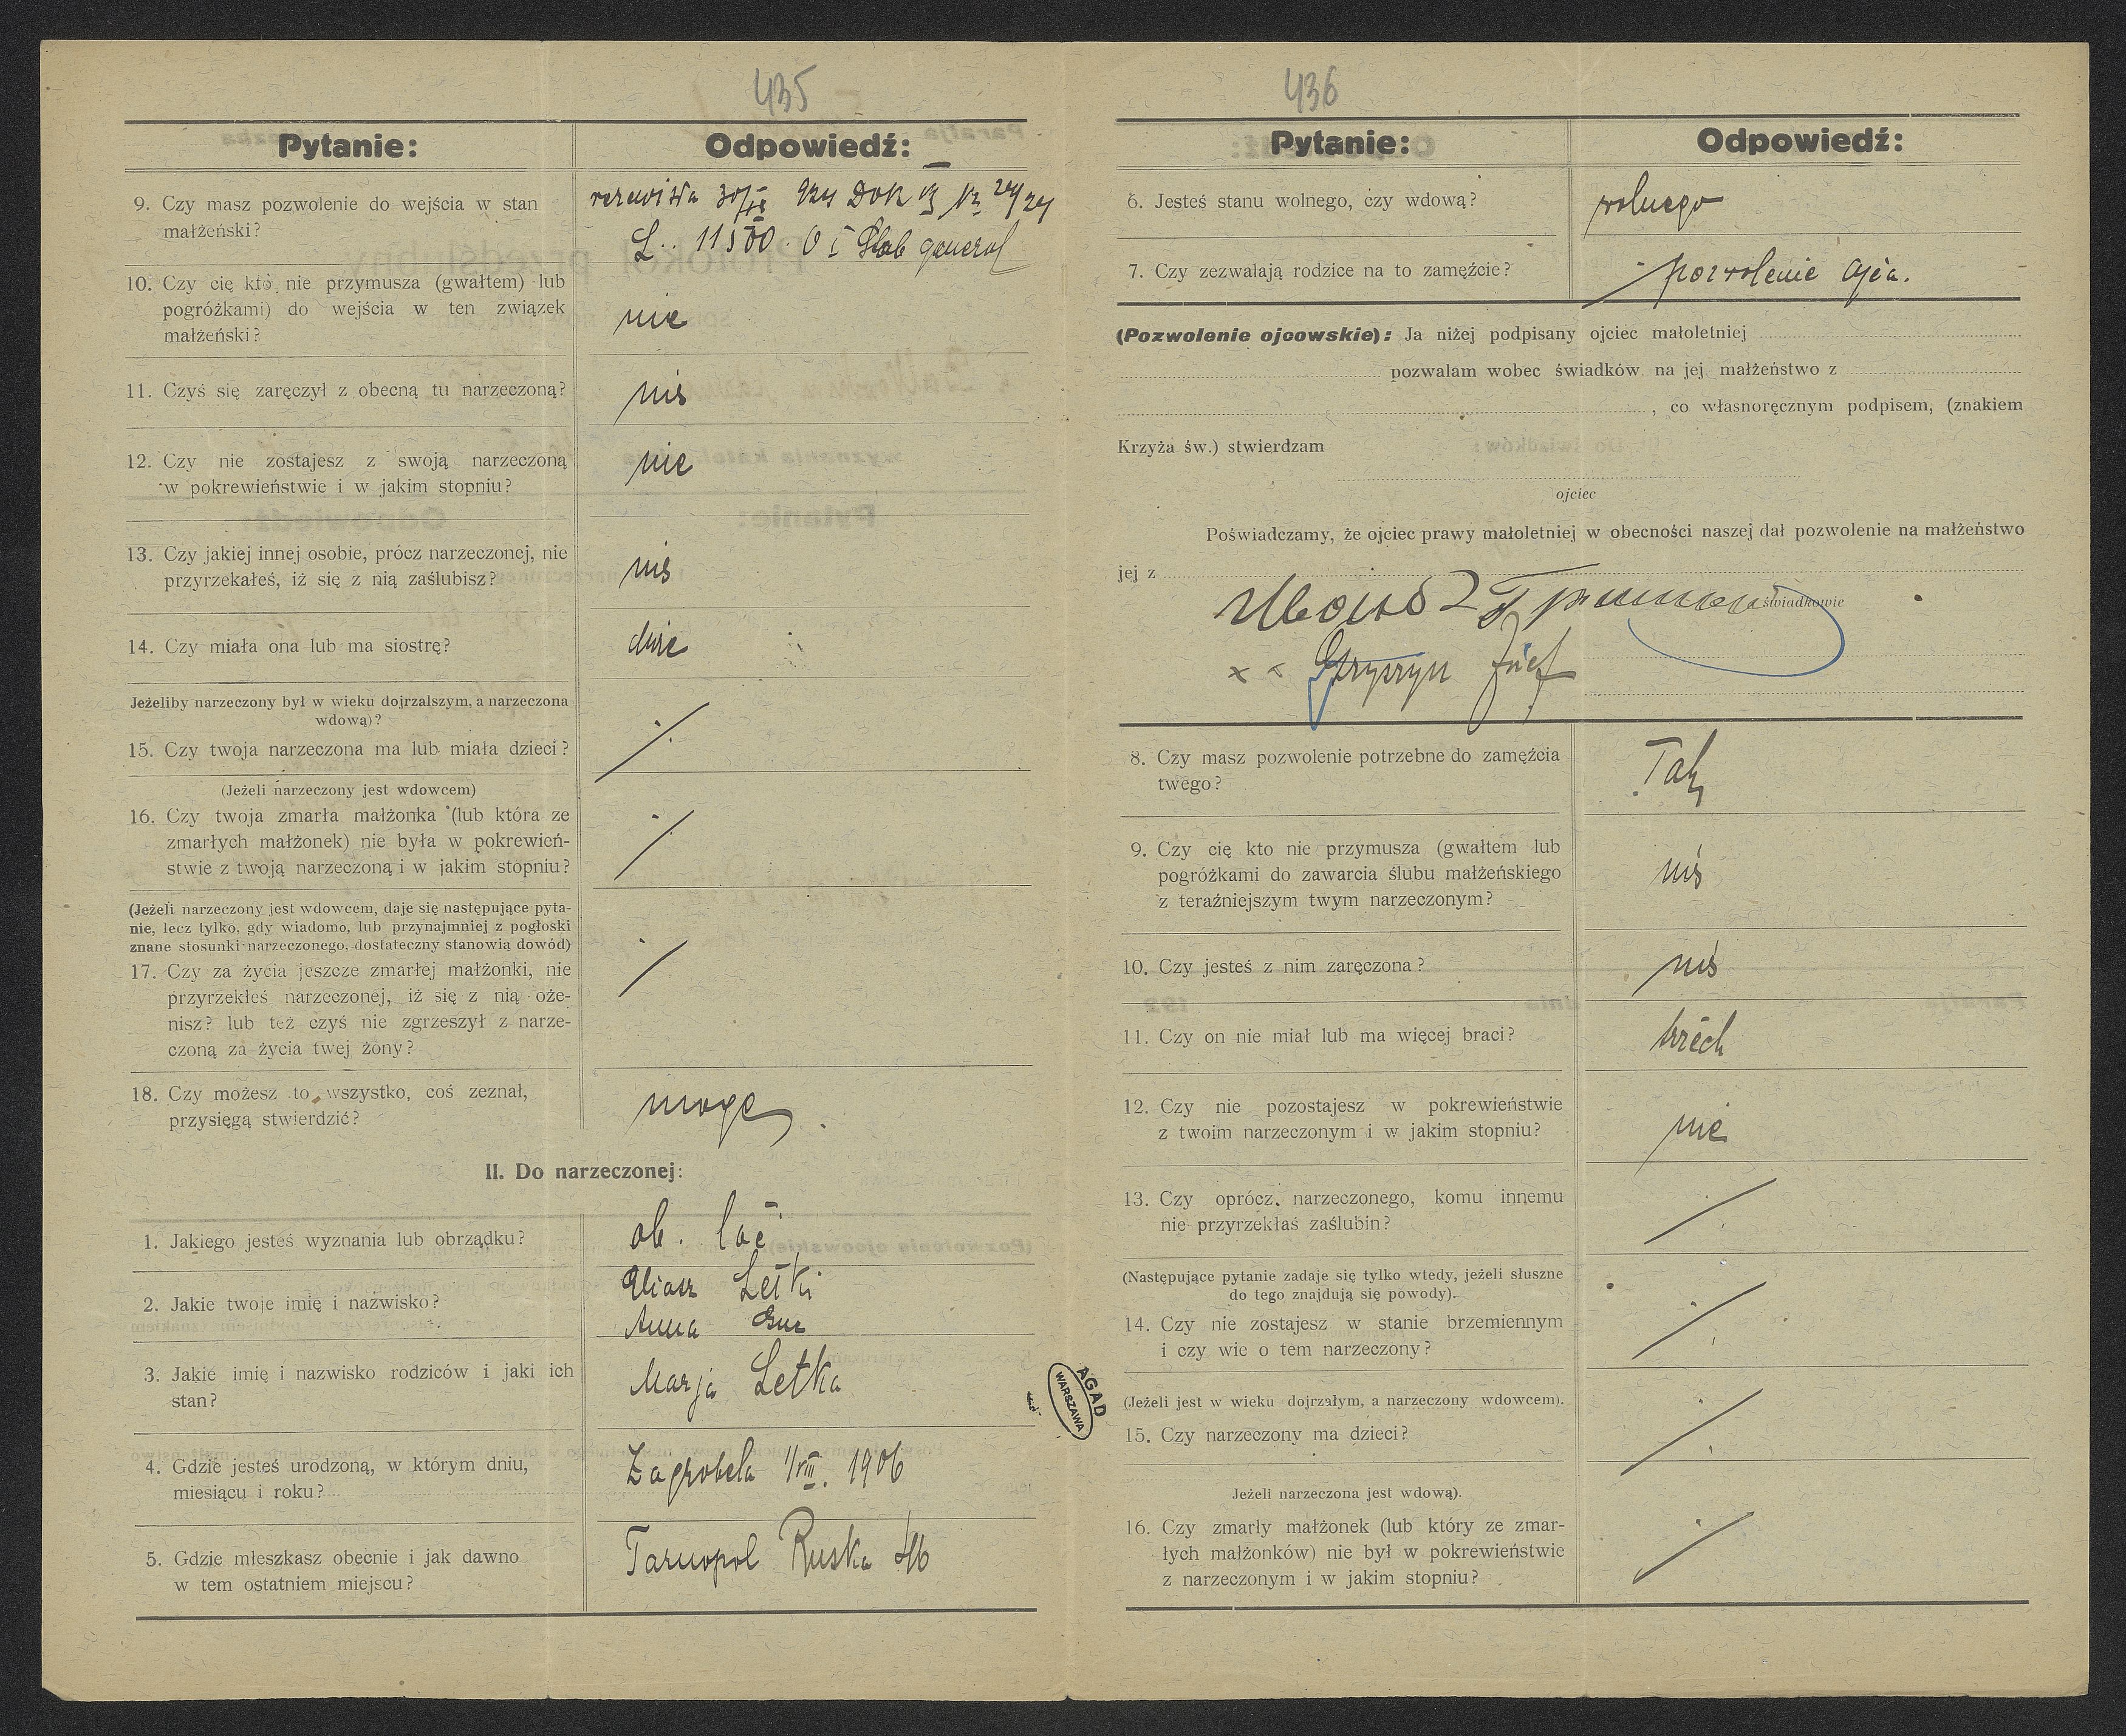 435
Pytanie:
Odpowiedź:
9. Czy masz pozwolenie do wejścia w stan
małżeński?
L. 11500. O I general
10. Czy cię kto nie przymusza (gwałtem) lub
pogróżkami) do wejścia w ten związek
małżeński?
nie
11. Czyś się zaręczył z obecną tu narzeczoną?
nie
12. Czy nie zostajesz z swoją narzeczoną
w pokrewieństwie i w jakim stopniu?
nie
13. Czy jakiej innej osobie, prócz narzeczonej, nie
przyrzekałeś, iż się z nią zaślubisz?
nie
14. Czy miała ona lub ma siostrę?
dwie
Jeżeliby narzeczony był w wieku dojrzalszym, a narzeczona
wdową)?
15. Czy twoja narzeczona ma lub miała dzieci?
(Jeżeli narzeczony jest wdowcem)
16. Czy twoja zmarła małżonka (lub która ze
zmarłych małżonek) nie była w pokrewień-
stwie z twoją narzeczoną i w jakim stopniu?
(Jeżeli narzeczony jest wdowcem, daje się następujące pyta-
nie, lecz tylko, gdy wiadomo, lub przynajmniej z pogłoski
znane stosunki narzeczonego, dostateczny stanowią dowód)
17. Czy za życia jeszcze zmarłej małżonki, nie
przyrzekłeś narzeczonej, iż się z nią oże-
nisz? lub też czyś nie zgrzeszył z narze-
czoną za życia twej żony?
18. Czy możesz to wszystko, coś zeznał,
przysięgą stwierdzić?
mogę
II. Do narzeczonej:
1. Jakiego jesteś wyznania lub obrządku?
ob. łać
2. Jakie twoje imię i nazwisko?
Eliasz Letki
Anna Gur
3. Jakie imię i nazwisko rodziców i jaki ich
stan?
Marja Letka
4. Gdzie jesteś urodzoną, w którym dniu,
miesiącu i roku?
Zagrobela 1/VIII. 1906
5. Gdzie mieszkasz obecnie i jak dawno
w tem ostatniem miejscu?
Tarnopol Ruska 46
AGAD
WARSZAWA
436
Pytanie:
Odpowiedź:
6. Jesteś stanu wolnego, czy wdową?
wolnego
7. Czy zezwalają rodzice na to zamęźcie?
pozwolenie ojca.
(Pozwolenie ojcowskie): Ja niżej podpisany ojciec małoletniej
pozwalam wobec świadków na jej małżeństwo z
, co własnoręcznym podpisem, (znakiem
Krzyża św.) stwierdzam
ojciec
Poświadczamy, że ojciec prawy małoletniej w obecności naszej dał pozwolenie na małżeństwo
jej z
świadkowie
x x Józef
8. Czy masz pozwolenie potrzebne do zamęźcia
twego?
Tak
9. Czy cię kto nie przymusza (gwałtem lub
pogróżkami do zawarcia ślubu małżeńskiego
z teraźniejszym twym narzeczonym?
nie
10. Czy jesteś z nim zaręczona?
nie
11. Czy on nie miał lub ma więcej braci?
trzech
12. Czy nie pozostajesz w pokrewieństwie
z twoim narzeczonym i w jakim stopniu?
nie
13. Czy oprócz narzeczonego, komu innemu
nie przyrzekłaś zaślubin?
(Następujące pytanie zadaje się tylko wtedy, jeżeli słuszne
do tego znajdują się powody).
14. Czy nie zostajesz w stanie brzemiennym
i czy wie o tem narzeczony?
(Jeżeli jest w wieku dojrzałym, a narzeczony wdowcem).
15. Czy narzeczony ma dzieci?
Jeżeli narzeczona jest wdową).
16. Czy zmarły małżonek (lub który ze zmar-
łych małżonków) nie był w pokrewieństwie
z narzeczonym i w jakim stopniu?